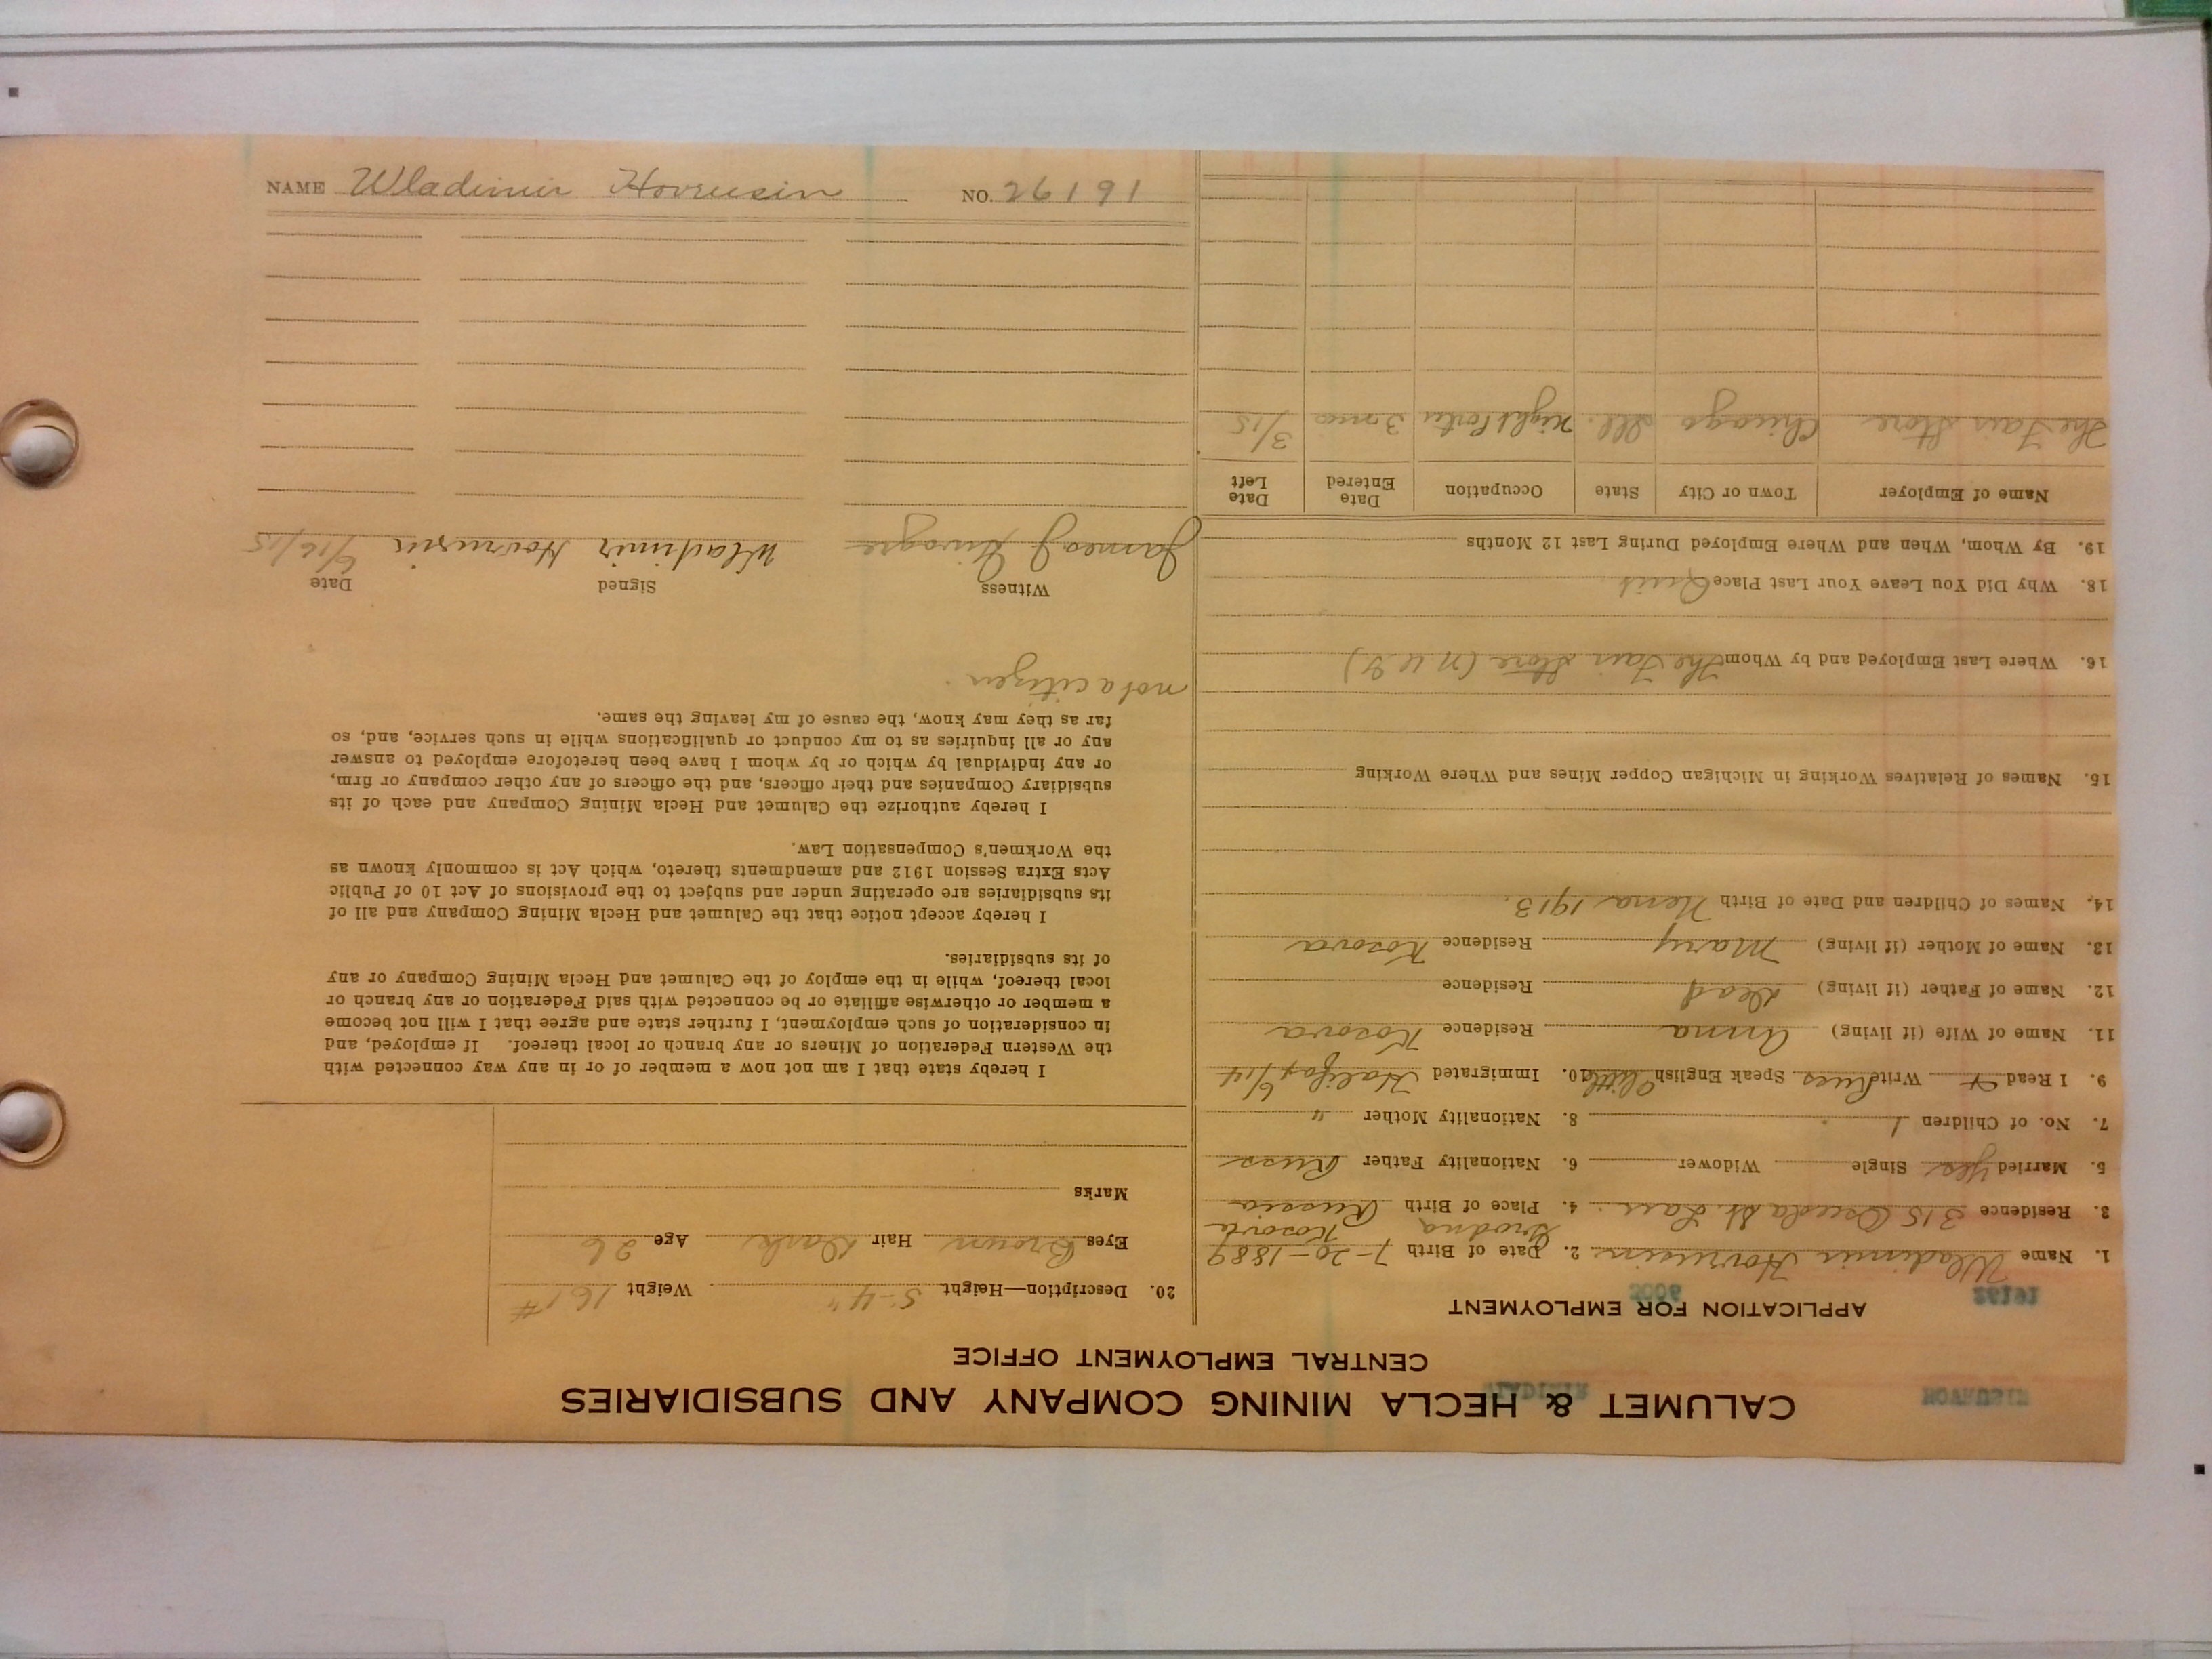 CALUMET & HECLA MINING COMPANY AND SUBSIDIARIES
CENTRAL EMPLOYMENT OFFICE
APPLICATION FOR EMPLOYMENT
1. Name Wladimir Hovrusin 2. Date of Birth 7-20-1889
Grodna Kosova
3. Residence 315 Osceola St. Laur. 4. Place of Birth Russia
5. Married Yes Single Widower 6. Nationality Father Russ
7. No. of Children 1 8. Nationality Mother "
9. I Read + Write Russ Speak English Little 10. Immigrated Halifax 6/14
11. Name of Wife (if living) Anna Residence Kosova
12. Name of Father (if living) Dead Residence
13. Name of Mother (if living) Mary Residence Kosova
14. Names of Children and Date of Birth 1913.
15. Names of Relatives Working in Michigan Copper Mines and Where Working
16. Where Last Employed and by Whom The Fair Store
18. Why Did You Leave Your Last Place Quit
19. By Whom, When and Where Employed During Last 12 Months
Name of Employer Town or City State Occupation Date Entered Date Left
The Fair Store Chicago Ill. Night Porter 3 mos 3/15
20. Description—Height 5-4" Weight 161#
Eyes Brown Hair Dark Age 26
Marks
I hereby state that I am not now a member of or in any way connected with
the Western Federation of Miners or any branch or local thereof. If employed, and
in consideration of such employment, I further state and agree that I will not become
a member or otherwise affiliate or be connected with said Federation or any branch or
local thereof, while in the employ of the Calumet and Hecla Mining Company or any
of its subsidiaries.
I hereby accept notice that the Calumet and Hecla Mining Company and all of
its subsidiaries are operating under and subject to the provisions of Act 10 of Public
Acts Extra Session 1912 and amendments thereto, which Act is commonly known as
the Workmen's Compensation Law.
I hereby authorize the Calumet and Hecla Mining Company and each of its
subsidiary Companies and their officers, and the officers of any other company or firm,
or any individual by which or by whom I have been heretofore employed to answer
any or all inquiries as to my conduct or qualifications while in such service, and, so
far as they may know, the cause of my leaving the same.
not a citizen.
Witness Signed Date
James J Wladimir Hovrusin 6/16/15
NAME Wladimir Hovrusin NO. 26191